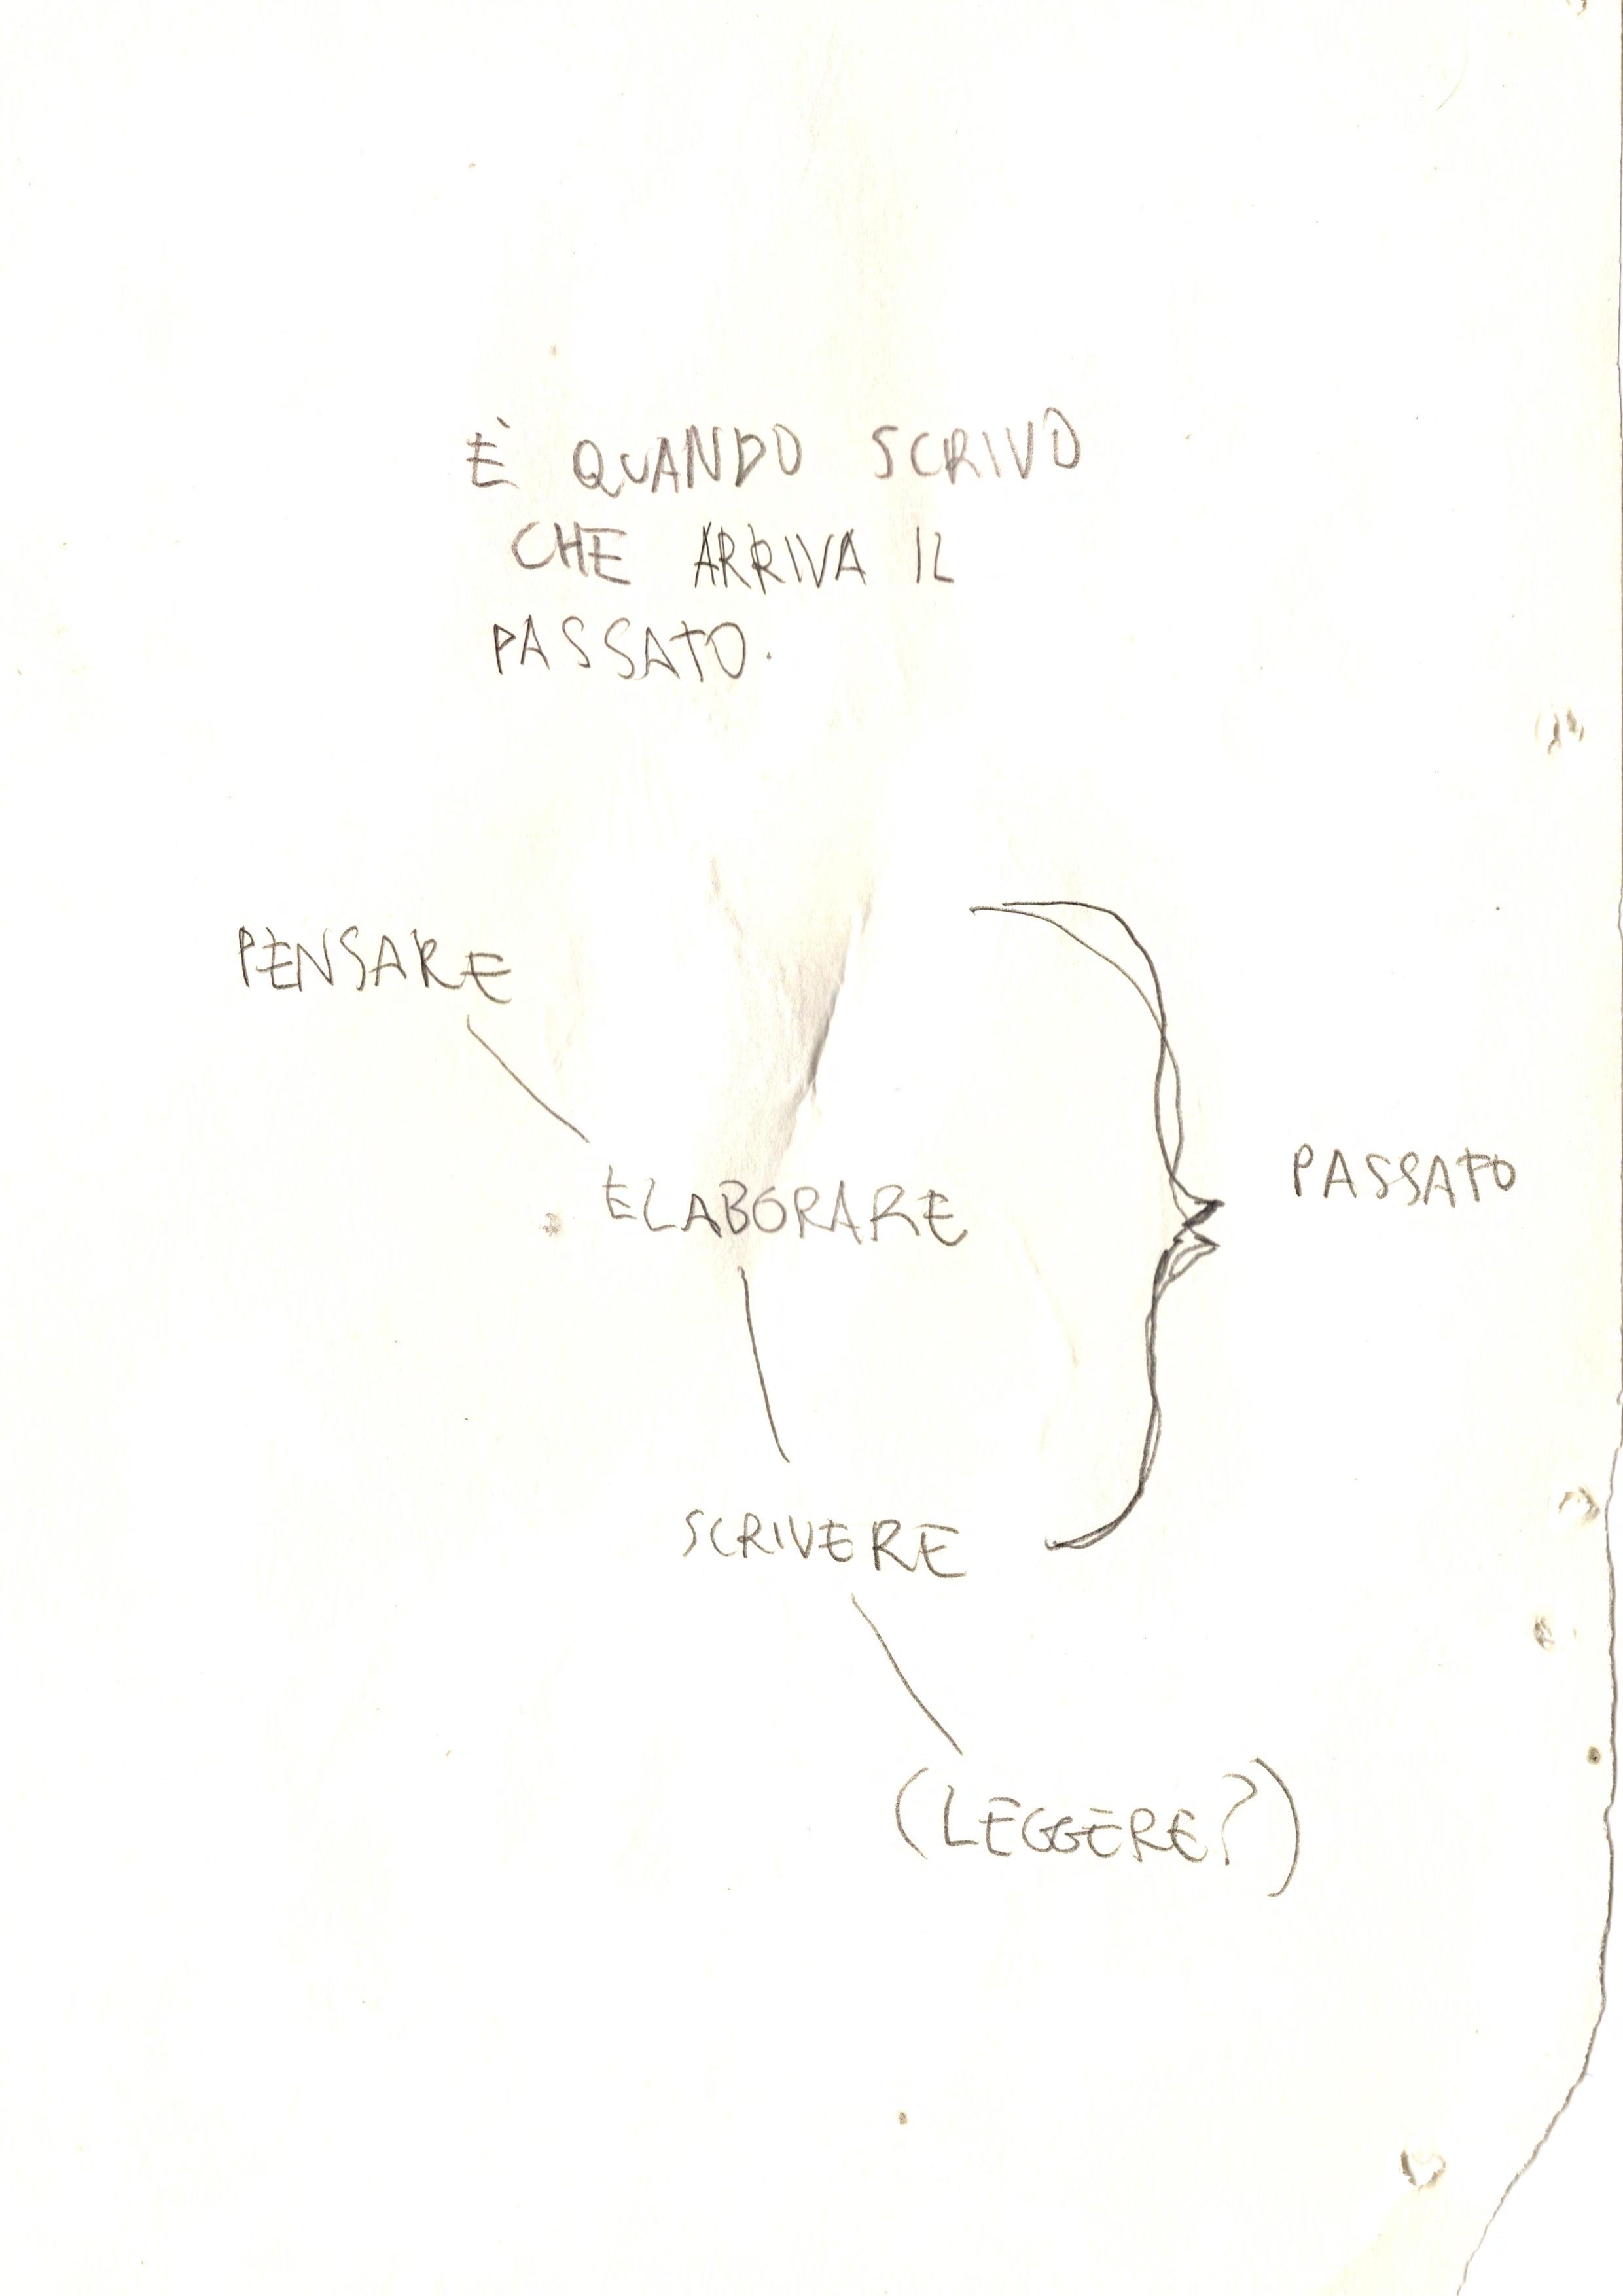 È QUANDO SCRIVO
CHE ARRIVA IL
PASSATO.
PENSARE
ELABORARE
PASSATO
SCRIVERE
(LEGGERE?)